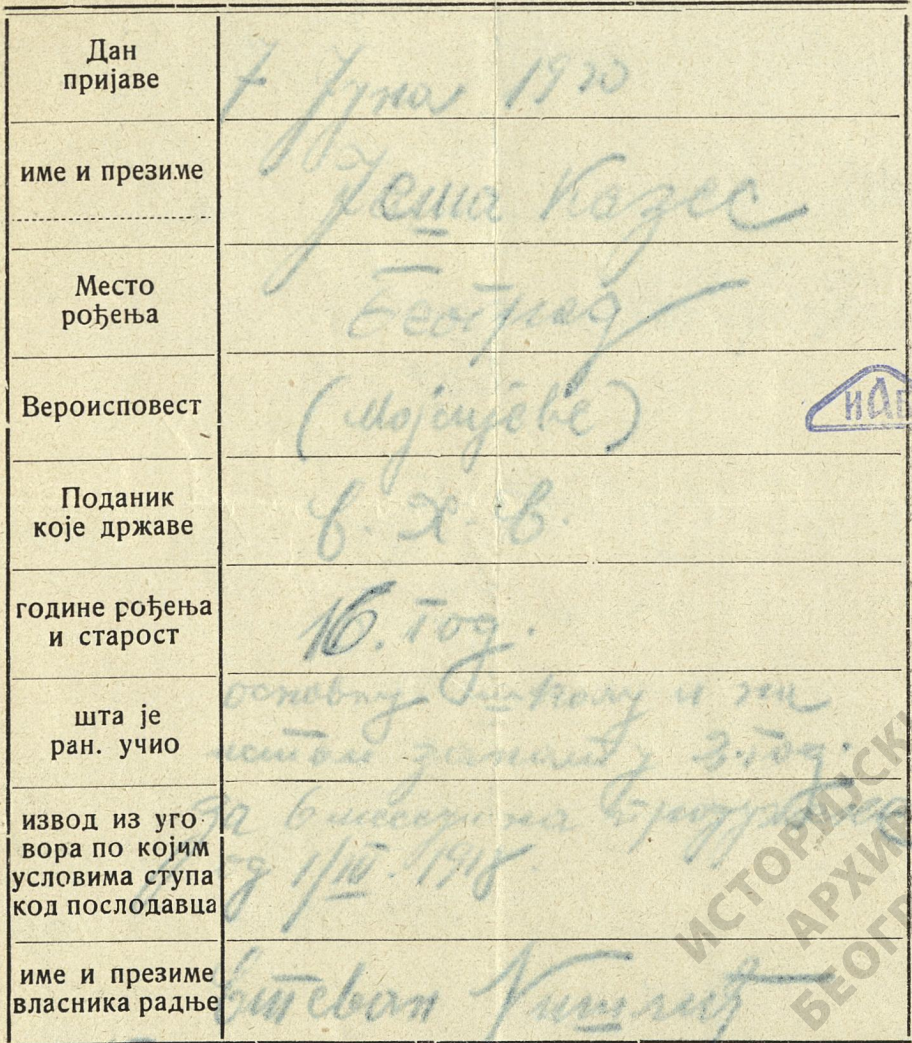 Дан
пријаве
7 Јуна 1920
име и презиме
Јеша Казес
Место
рођења
Београд
Вероисповест
(Мојсијеве)
Поданик
које државе
С. Х. С.
године рођења
и старост
16. год.
шта је
ран. учио
основну школу и на
истом занату 2 год.
извод из уго
вора по којим
условима ступа
код послодавца
За 6 месеци на
од 1/III. 1918
име и презиме
власника радње
Стеван
ИАБ
ИСТОРИЈСКИ
АРХИВ
БЕОГР